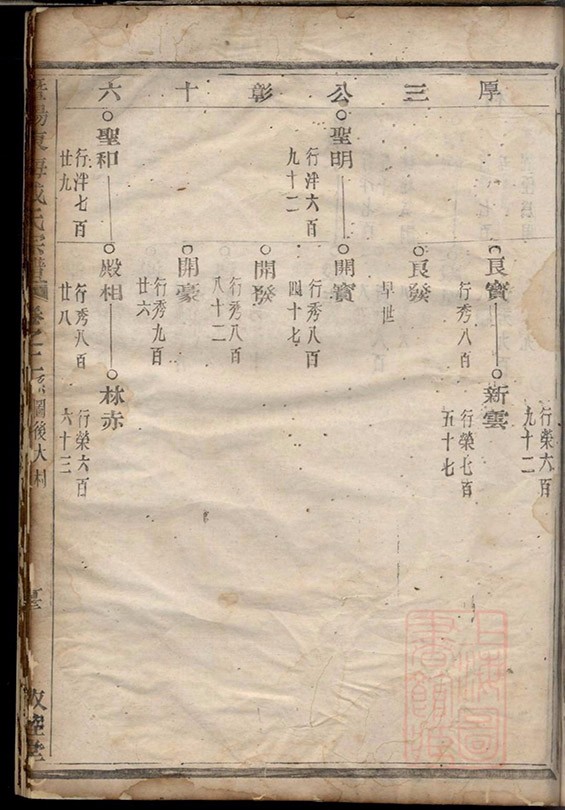 厚三公彰十六
行榮六百
九十二
良寳
行秀八百
新雲
行榮七百
五十七
良發
早世
聖明
行泮六百
九十二
開寳
行秀八百
四十七
開發
行秀八百
八十二
開豪
行秀九百
廿六
聖和
行泮七百
廿九
殿相
行秀八百
廿八
林赤
行榮六百
六十三
暨陽東海戚氏宗譜
圖後大村